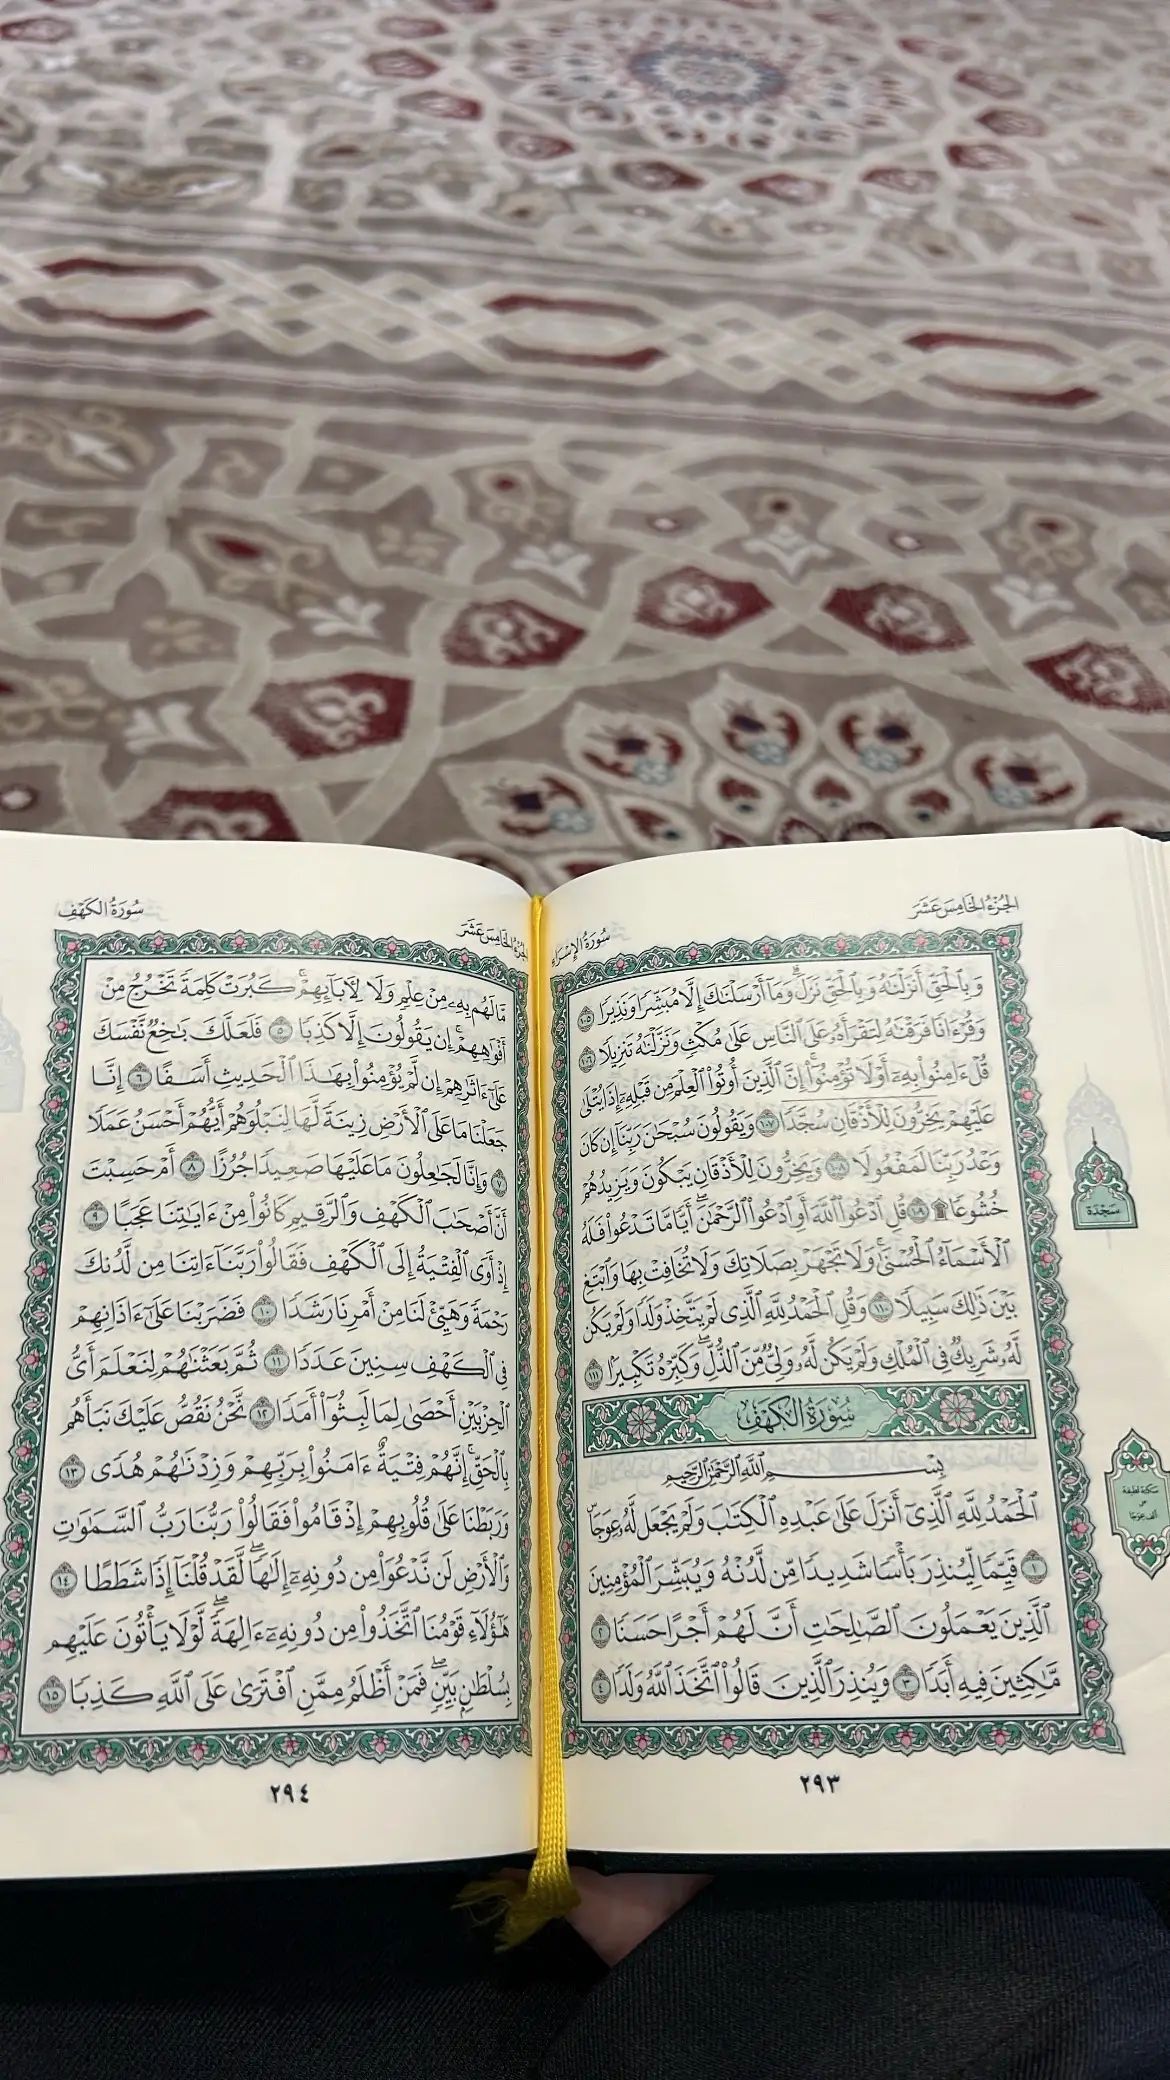 الجُزْءُ الخَامِسَ عَشَرَ
سُورَةُ الإِسْرَاءِ
وَبِٱلْحَقِّ أَنزَلْنَٰهُ وَبِٱلْحَقِّ نَزَلَۗ وَمَآ أَرْسَلْنَٰكَ إِلَّا مُبَشِّرًا وَنَذِيرًا ١٠٥
وَقُرْءَانًا فَرَقْنَٰهُ لِتَقْرَأَهُۥ عَلَى ٱلنَّاسِ عَلَىٰ مُكْثٍ وَنَزَّلْنَٰهُ تَنزِيلًا ١٠٦
قُلْ ءَامِنُوا۟ بِهِۦٓ أَوْ لَا تُؤْمِنُوٓا۟ۚ إِنَّ ٱلَّذِينَ أُوتُوا۟ ٱلْعِلْمَ مِن قَبْلِهِۦٓ إِذَا يُتْلَىٰ
عَلَيْهِمْ يَخِرُّونَ لِلْأَذْقَانِ سُجَّدًا ١٠٧ وَيَقُولُونَ سُبْحَٰنَ رَبِّنَآ إِن كَانَ
وَعْدُ رَبِّنَا لَمَفْعُولًا ١٠٨ وَيَخِرُّونَ لِلْأَذْقَانِ يَبْكُونَ وَيَزِيدُهُمْ
خُشُوعًا۩ ١٠٩ قُلِ ٱدْعُوا۟ ٱللَّهَ أَوِ ٱدْعُوا۟ ٱلرَّحْمَٰنَۖ أَيًّا مَّا تَدْعُوا۟ فَلَهُ
ٱلْأَسْمَآءُ ٱلْحُسْنَىٰۚ وَلَا تَجْهَرْ بِصَلَاتِكَ وَلَا تُخَافِتْ بِهَا وَٱبْتَغِ
بَيْنَ ذَٰلِكَ سَبِيلًا ١١٠ وَقُلِ ٱلْحَمْدُ لِلَّهِ ٱلَّذِى لَمْ يَتَّخِذْ وَلَدًا وَلَمْ يَكُن
لَّهُۥ شَرِيكٌ فِى ٱلْمُلْكِ وَلَمْ يَكُن لَّهُۥ وَلِىٌّ مِّنَ ٱلذُّلِّۖ وَكَبِّرْهُ تَكْبِيرًۢا ١١١
سُورَةُ الكَهْفِ
بِسْمِ ٱللَّهِ ٱلرَّحْمَٰنِ ٱلرَّحِيمِ
ٱلْحَمْدُ لِلَّهِ ٱلَّذِىٓ أَنزَلَ عَلَىٰ عَبْدِهِ ٱلْكِتَٰبَ وَلَمْ يَجْعَل لَّهُۥ عِوَجَاۜ
١ قَيِّمًا لِّيُنذِرَ بَأْسًا شَدِيدًا مِّن لَّدُنْهُ وَيُبَشِّرَ ٱلْمُؤْمِنِينَ
ٱلَّذِينَ يَعْمَلُونَ ٱلصَّٰلِحَٰتِ أَنَّ لَهُمْ أَجْرًا حَسَنًا ٢
مَّٰكِثِينَ فِيهِ أَبَدًا ٣ وَيُنذِرَ ٱلَّذِينَ قَالُوا۟ ٱتَّخَذَ ٱللَّهُ وَلَدًا ٤
٢٩٣
سَجْدَة
سكتة لطيفة
على
ألف عوجا
الجُزْءُ الخَامِسَ عَشَرَ
سُورَةُ الكَهْفِ
مَّا لَهُم بِهِۦ مِنْ عِلْمٍ وَلَا لِـَٔابَآئِهِمْۚ كَبُرَتْ كَلِمَةً تَخْرُجُ مِنْ
أَفْوَٰهِهِمْۚ إِن يَقُولُونَ إِلَّا كَذِبًا ٥ فَلَعَلَّكَ بَٰخِعٌ نَّفْسَكَ
عَلَىٰٓ ءَاثَٰرِهِمْ إِن لَّمْ يُؤْمِنُوا۟ بِهَٰذَا ٱلْحَدِيثِ أَسَفًا ٦ إِنَّا
جَعَلْنَا مَا عَلَى ٱلْأَرْضِ زِينَةً لَّهَا لِنَبْلُوَهُمْ أَيُّهُمْ أَحْسَنُ عَمَلًا
٧ وَإِنَّا لَجَٰعِلُونَ مَا عَلَيْهَا صَعِيدًا جُرُزًا ٨ أَمْ حَسِبْتَ
أَنَّ أَصْحَٰبَ ٱلْكَهْفِ وَٱلرَّقِيمِ كَانُوا۟ مِنْ ءَايَٰتِنَا عَجَبًا ٩
إِذْ أَوَى ٱلْفِتْيَةُ إِلَى ٱلْكَهْفِ فَقَالُوا۟ رَبَّنَآ ءَاتِنَا مِن لَّدُنكَ
رَحْمَةً وَهَيِّئْ لَنَا مِنْ أَمْرِنَا رَشَدًا ١٠ فَضَرَبْنَا عَلَىٰٓ ءَاذَانِهِمْ
فِى ٱلْكَهْفِ سِنِينَ عَدَدًا ١١ ثُمَّ بَعَثْنَٰهُمْ لِنَعْلَمَ أَىُّ
ٱلْحِزْبَيْنِ أَحْصَىٰ لِمَا لَبِثُوٓا۟ أَمَدًا ١٢ نَّحْنُ نَقُصُّ عَلَيْكَ نَبَأَهُم
بِٱلْحَقِّۚ إِنَّهُمْ فِتْيَةٌ ءَامَنُوا۟ بِرَبِّهِمْ وَزِدْنَٰهُمْ هُدًى ١٣
وَرَبَطْنَا عَلَىٰ قُلُوبِهِمْ إِذْ قَامُوا۟ فَقَالُوا۟ رَبُّنَا رَبُّ ٱلسَّمَٰوَٰتِ
وَٱلْأَرْضِ لَن نَّدْعُوَا۟ مِن دُونِهِۦٓ إِلَٰهًاۖ لَّقَدْ قُلْنَآ إِذًا شَطَطًا ١٤
هَٰٓؤُلَآءِ قَوْمُنَا ٱتَّخَذُوا۟ مِن دُونِهِۦٓ ءَالِهَةًۖ لَّوْلَا يَأْتُونَ عَلَيْهِم
بِسُلْطَٰنٍۭ بَيِّنٍۖ فَمَنْ أَظْلَمُ مِمَّنِ ٱفْتَرَىٰ عَلَى ٱللَّهِ كَذِبًا ١٥
٢٩٤